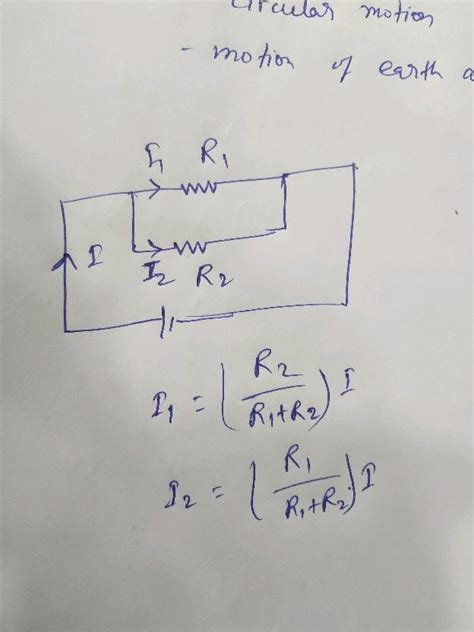 circular motion
- motion of earth a
I₁ R₁
I
I₂ R₂
I₁ = (R₂/(R₁+R₂)) I
I₂ = (R₁/(R₁+R₂)) I